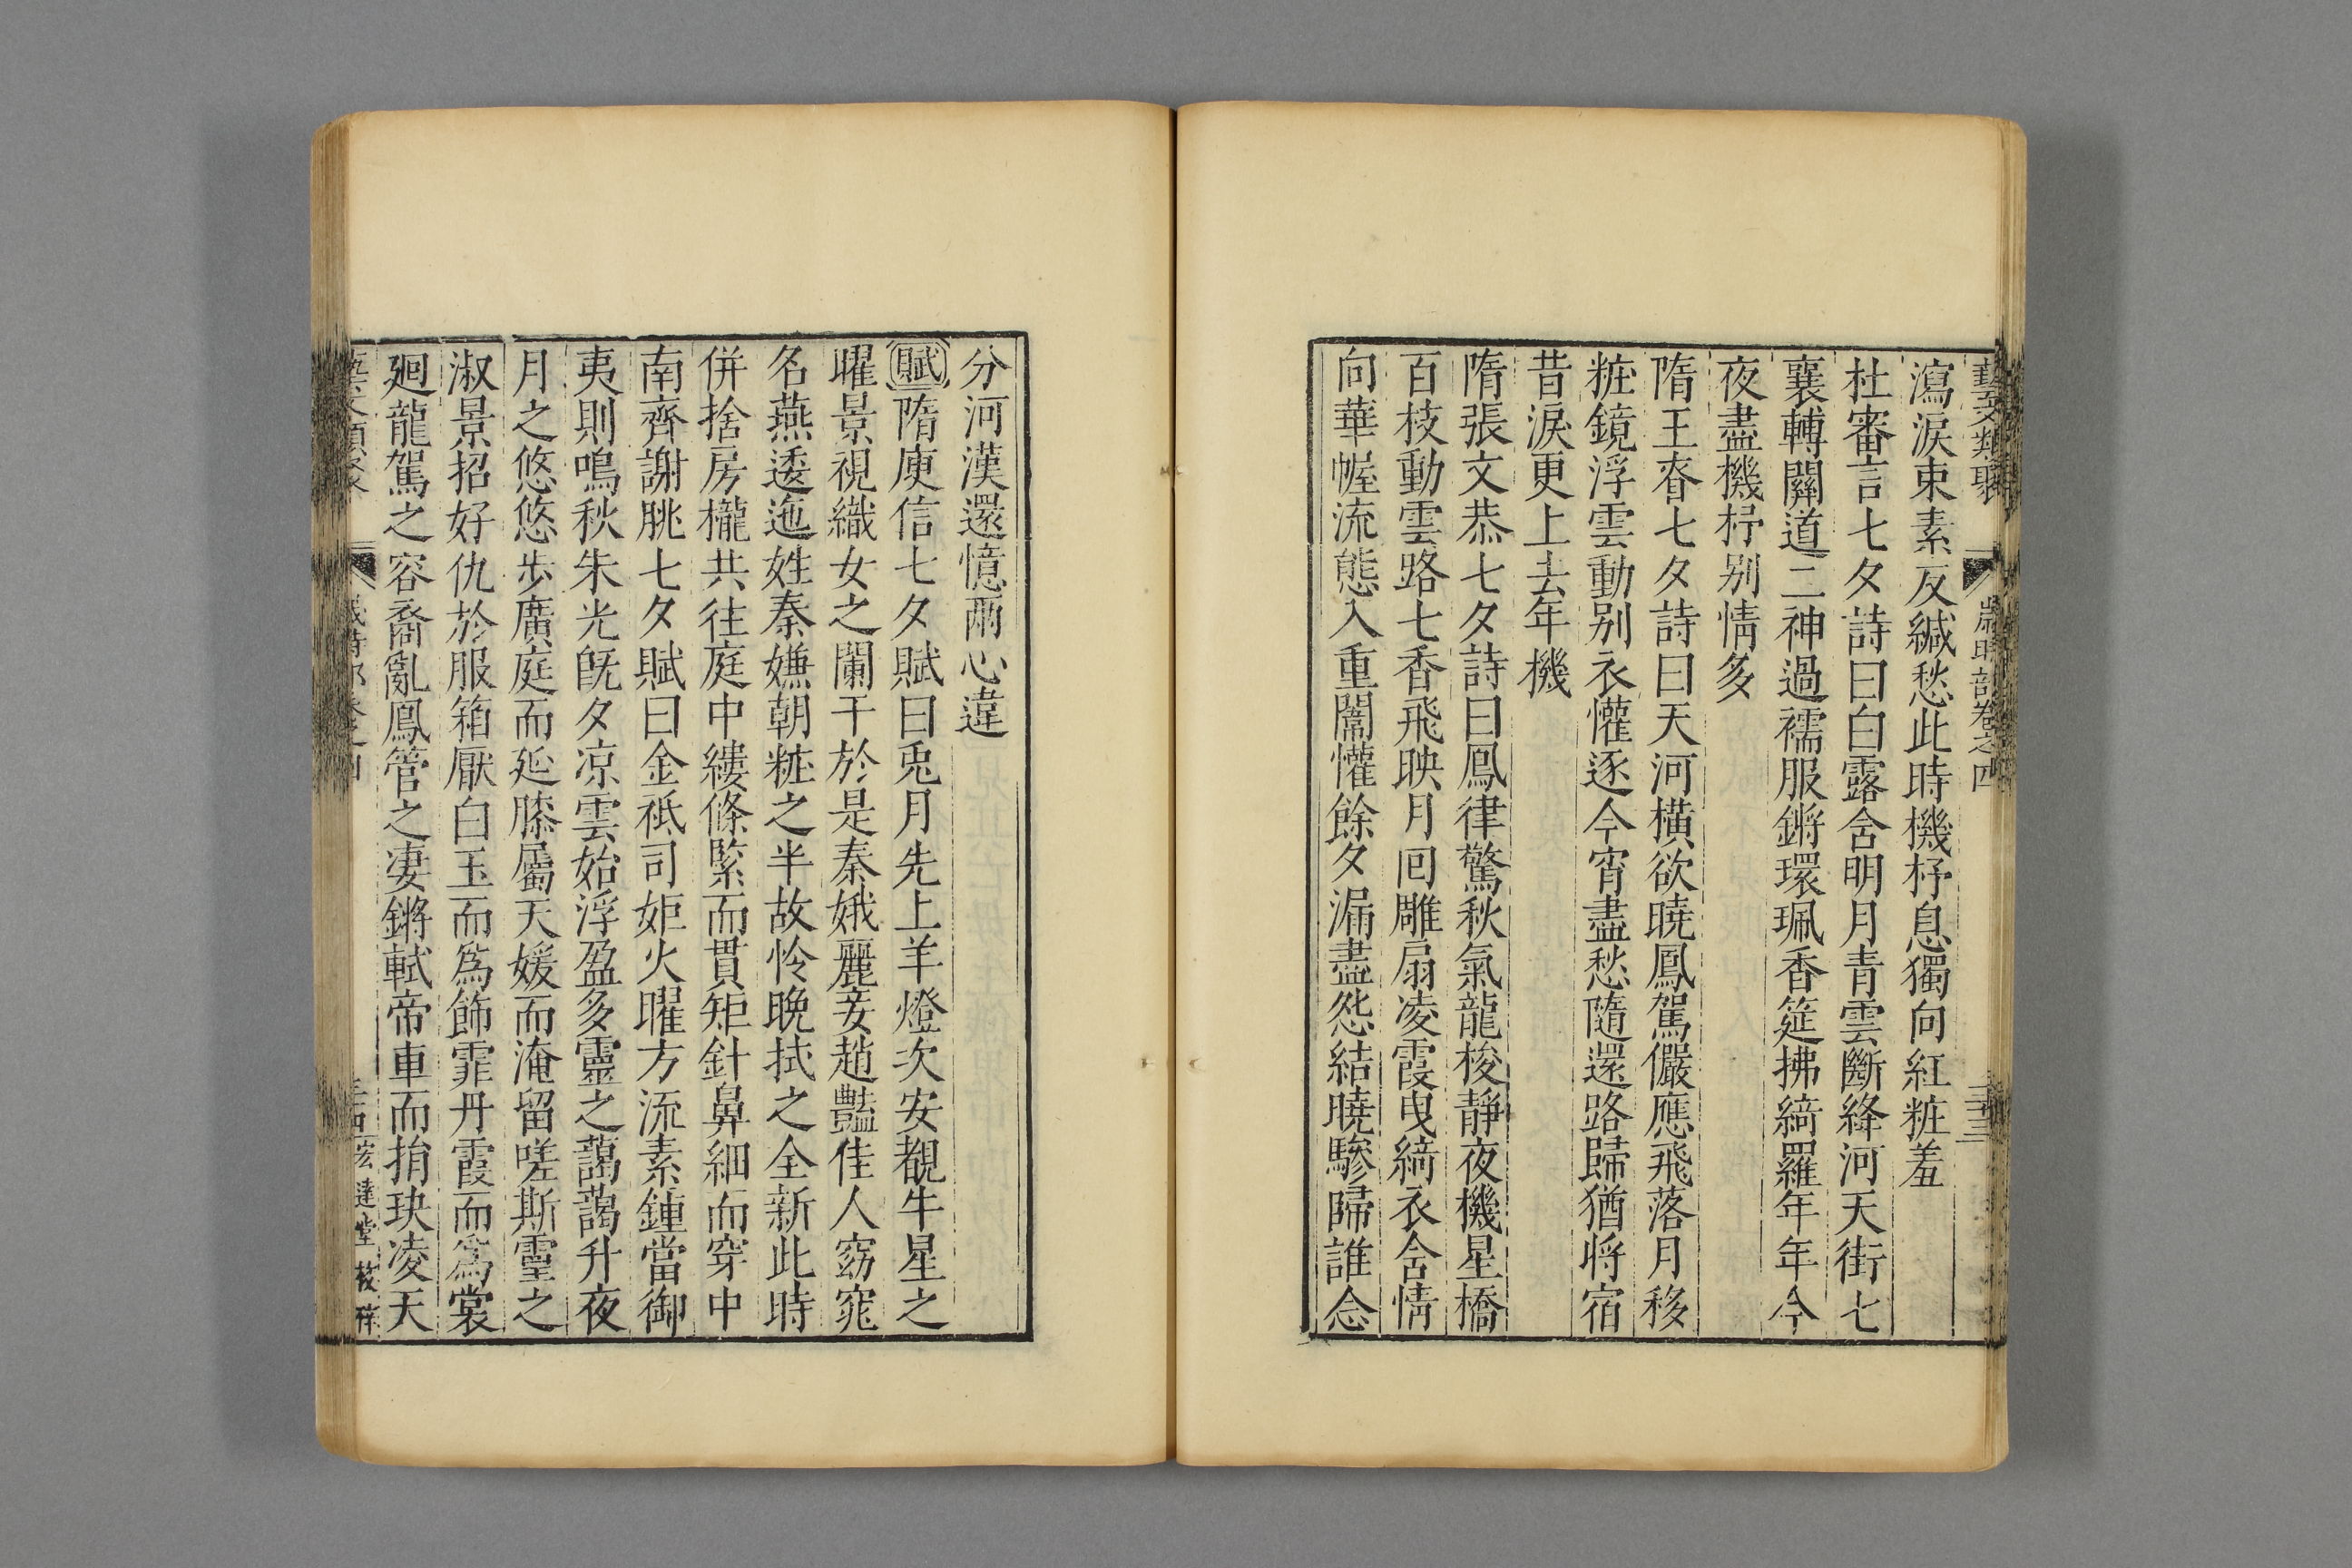 藝文類聚 歲時部卷之四 三十三
瀉淚束素反緘愁此時機杼息獨向紅粧羞
杜審言七夕詩曰白露含明月青雲斷絳河天街七
襄轉闗道二神過襦服鏘環珮香筵拂綺羅年年今
夜盡機杼别情多
隋王眘七夕詩曰天河横欲曉鳳駕儼應飛落月移
粧鏡浮雲動别衣懽逐今宵盡愁隨還路歸猶將宿
昔淚更上去年機
隋張文恭七夕詩曰鳳律驚秋氣龍梭静夜機星橋
百枝動雲路七香飛映月回雕扇凌霞曳綺衣含情
向華幄流態入重闈懽餘夕漏盡怨結曉驂歸誰念
分河漢還憶兩心違
賦 隋庾信七夕賦曰兎月先上羊燈次安覩牛星之
曜景視織女之闌干於是秦娥麗妾趙豔佳人窈窕
名燕逶迤姓秦嫌朝粧之半故怜晚拭之全新此時
併捨房櫳共往庭中縷條緊而貫矩針鼻細而穿中
南齊謝朓七夕賦曰金祇司矩火曜方流素鍾當御
夷則鳴秋朱光旣夕凉雲始浮盈多靈之藹藹升夜
月之悠悠步廣庭而延睇屬天媛而淹留嗟斯靈之
淑景招好仇於服箱厭白玉而為飾霏丹霞而為裳
廻龍駕之容裔亂鳳管之凄鏘軾帝車而捐玦凌天